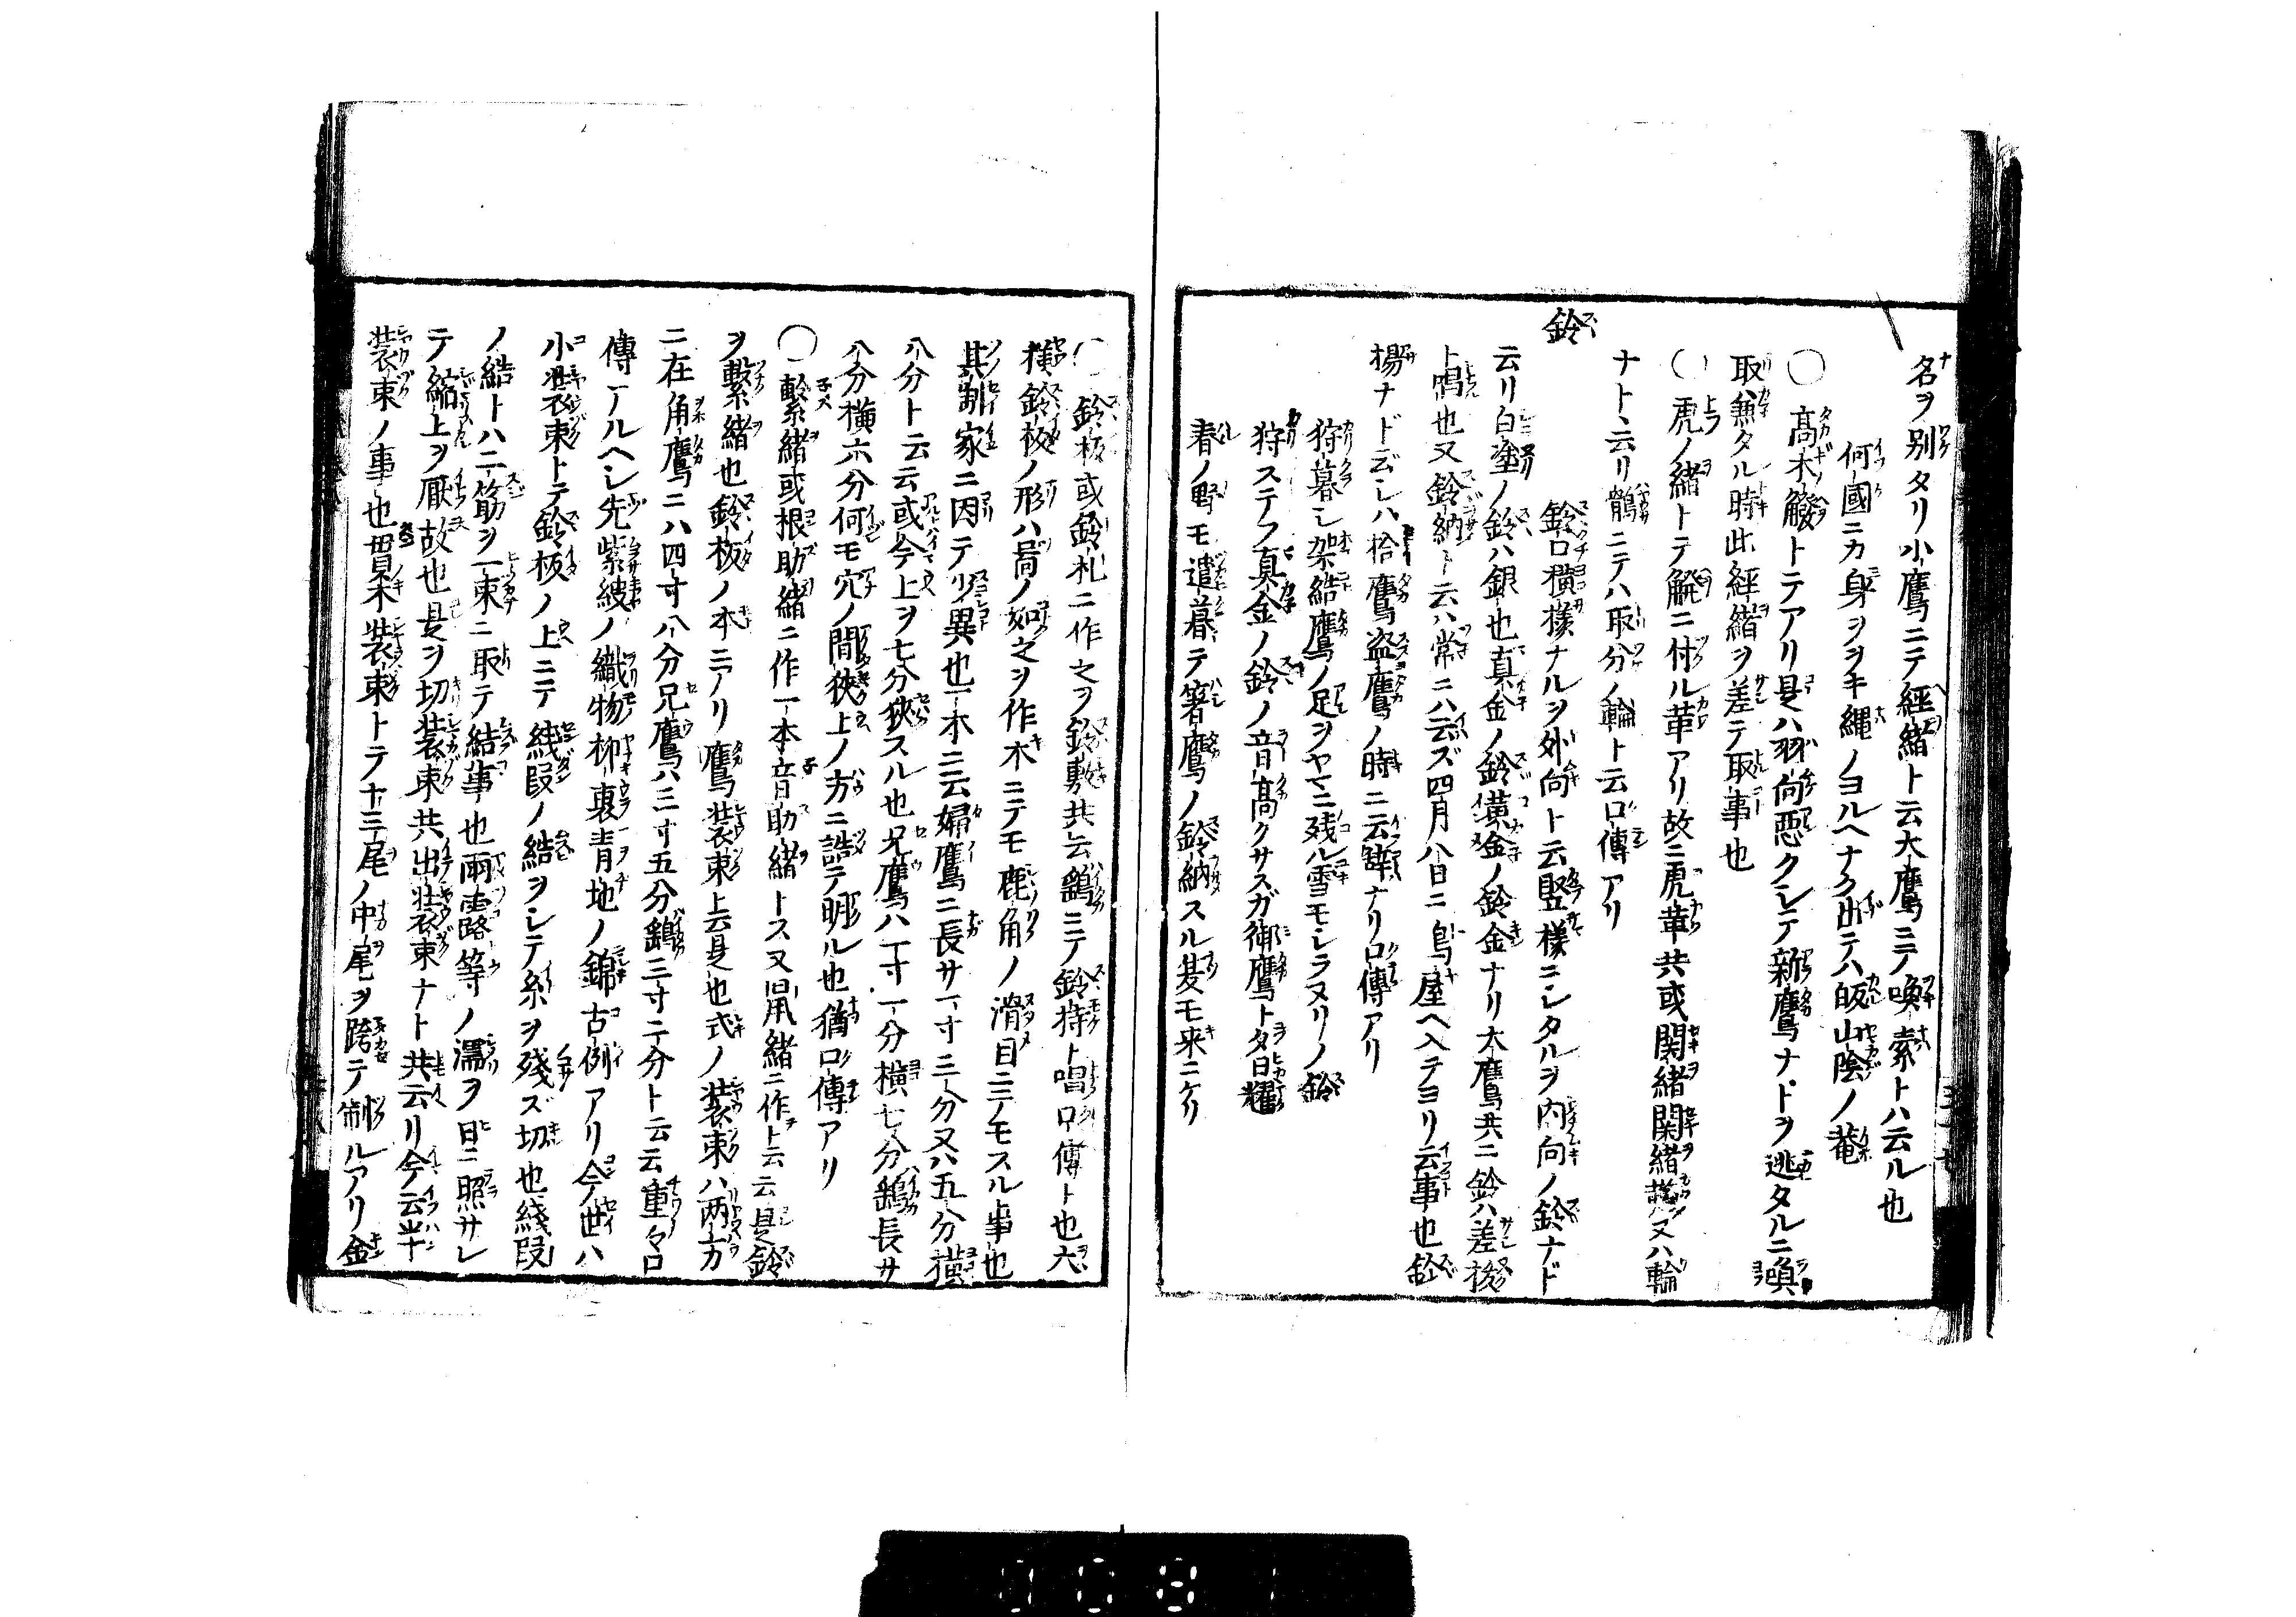 名ヲ別タリ小鷹ニテ經緒ト云大鷹ニテノ喚索トハ云ル也
何國ニカ身ヲヲキ縄ノヨルヘナク出テハ皈山陰ノ菴
〇高木簸トテアリ是ハ羽尚悪クレテ新鷹ナトヲ逃タルニ喚
取兼タル時此經緒ヲ差テ取事也
〇虎ノ緒トテ觧ニ付ル革アリ故ニ虎革共或関緒関緒又ハ輪
ナト云リ鶻ニテハ取分ノ輪ト云口傳アリ
鈴
鈴口横様ナルヲ外向ト云竪様ニシタルヲ内向ノ鈴ナド
云リ白塗ノ鈴ハ銀也真金ノ鈴黄金ノ鈴金ナリ大鷹共ニ鈴ハ差
ト鳴也又鈴納ト云ハ常ニハ云ズ四月八日ニ鳥屋ヘ入テヨリ云事也鈴
楊ナドゞレハ拾鷹盗鷹ノ時ニ云辞ナリ口傳アリ
狩暮シ架結鷹ノ足ヲヤニ残ル雪モシラヌリノ鈴
狩ステフ真金ノ鈴ノ音高クサスガ御鷹ト夕日耀
春ノ野モ遣暮テ箸鷹ノ鈴納スル夏モ来ニケリ
〇鈴板或鈴札ニ作之ヲ鈴敷共云鷂ニテ鈴持ト唱口傳ト也六
横鈴板ノ形ハ昺ノ如之ヲ作木ニテモ鹿角ノ滑目ニノモスル事也
其制家ニ因テ少異也一本ニ云婦鷹ニ長サ一寸三分又ハ五分横
八分ト云云或今上ヲ七分狹スル也兄鷹ハ一寸一分横七分鷂長サ
八分横六分何モ穴ノ間狹上ノ方ニ詰テ明ル也猶口傳アリ
〇繋緒或根助緒ニ作一本音助緒トス又鼡緒ニ作ト云云是鈴
ヲ繋緒也鈴板ノ本ニアリ鷹装束ト云是也式ノ装束ハ両方
ニ在角鷹ニハ四寸八分兄鷹ハ三寸五分鷂三寸二分ト云云重々口
傳アルヘシ先紫緂ノ織物柳裏青地ノ錦古例アリ今世ハ
小装束トテ鈴板ノ上ニテ綫段ノ結ヲシテ糸ヲ残ズ切也綫段
ノ結トハ二筋ヲ一束ニ取テ結事也雨露等ノ濡ヲ日ニ照サレ
テ縮上ヲ厭故也是ヲ切装束共出装束ナト共云リ今云半
装束ノ事也貫木装束トテ十三尾ノ中尾ヲ跨テ制ルアリ金